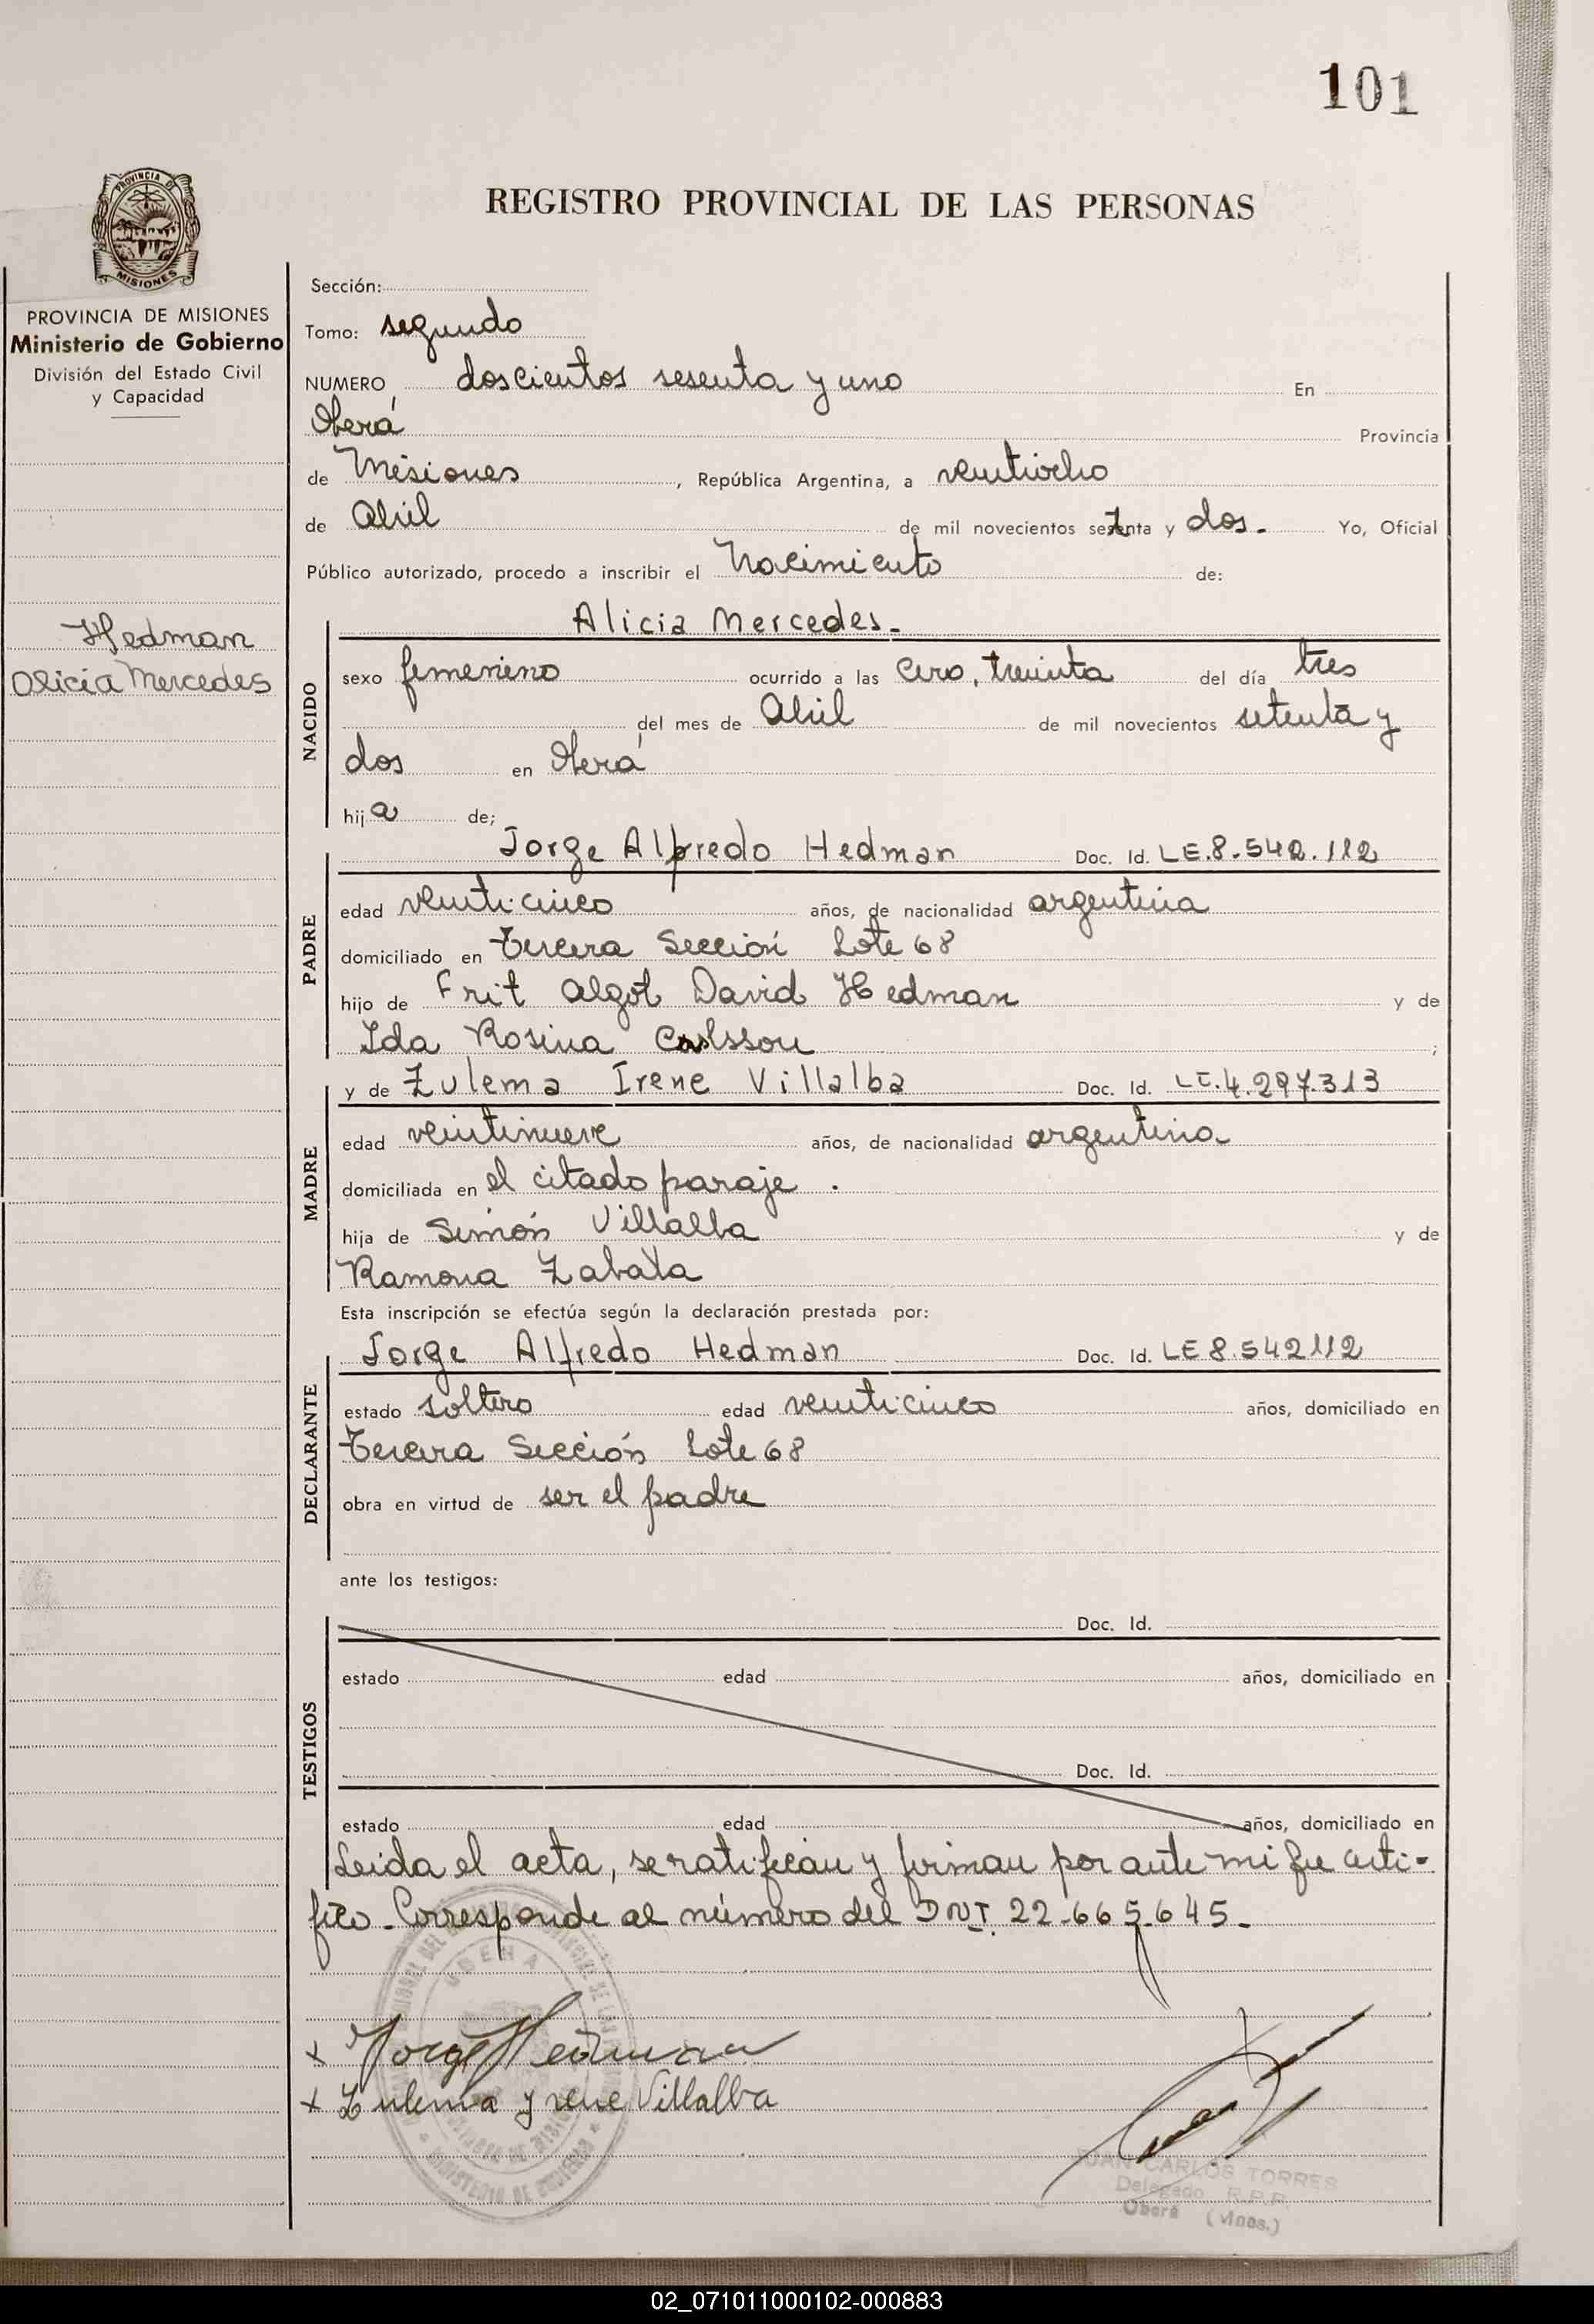 101
REGISTRO PROVINCIAL DE LAS PERSONAS
PROVINCIA DE
MISIONES
PROVINCIA DE MISIONES
Ministerio de Gobierno
División del Estado Civil
y Capacidad
Hedman
Alicia Mercedes
Sección:
Tomo: segundo
NUMERO doscientos sesenta y uno En
Oberá Provincia
de Misiones, República Argentina, a veintiocho
de Abril de mil novecientos setenta y dos. Yo, Oficial
Público autorizado, procedo a inscribir el Nacimiento de:
NACIDO
Alicia Mercedes.
sexo femenino ocurrido a las Cero, treinta del día tres
del mes de Abril de mil novecientos setenta y
dos en Oberá
hija de;
PADRE
Jorge Alfredo Hedman Doc. Id. LE.8.542.112
edad veinticinco años, de nacionalidad argentina
domiciliado en Tercera Sección Lote 68
hijo de Frit Algot David Hedman y de
Ida Rosina Carlsson;
MADRE
y de Zulema Irene Villalba Doc. Id. LC.4.297.313
edad veintinueve años, de nacionalidad argentina
domiciliada en el citado paraje.
hija de Simón Villalba y de
Ramona Zabala
Esta inscripción se efectúa según la declaración prestada por:
DECLARANTE
Jorge Alfredo Hedman Doc. Id. LE 8.542112
estado soltero edad veinticinco años, domiciliado en
Tercera Sección Lote 68
obra en virtud de ser el padre
ante los testigos:
TESTIGOS
Doc. Id.
estado edad años, domiciliado en
Doc. Id.
estado edad años, domiciliado en
Leida el acta, se ratifican y firman por ante mi que certi-
fico. Corresponde al número del DNI 22.665.645.
x Jorge Hedman
x Zulema Yrene Villalba
JUAN CARLOS TORRES
Delegado R.P.P.
Oberá (Mnes.)
02_071011000102-000883